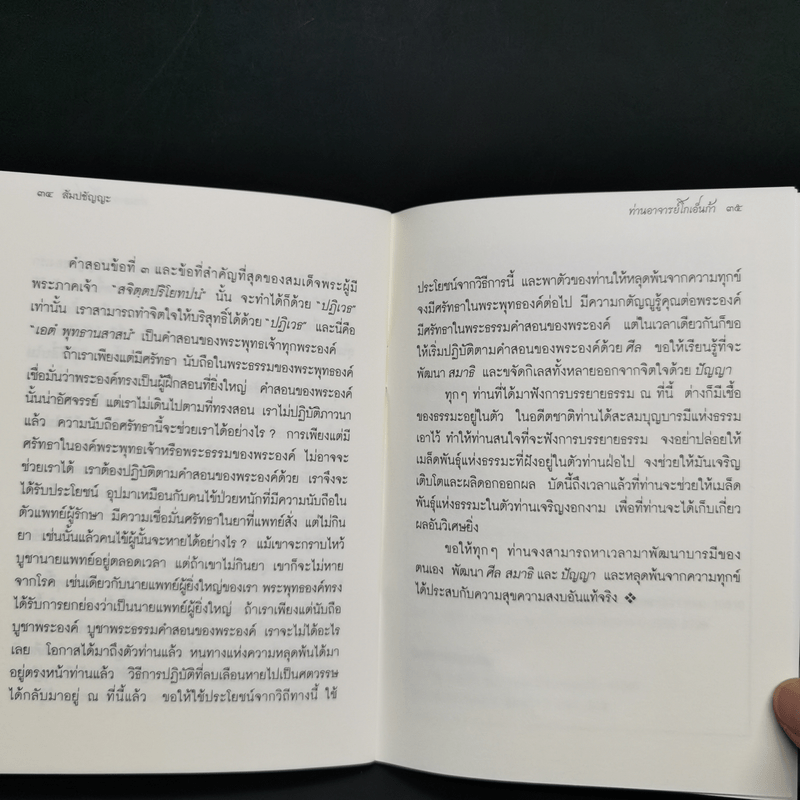 ๓๔ สัมปชัญญะ
คำสอนข้อที่ ๓ และข้อที่สำคัญที่สุดของสมเด็จพระผู้มี
พระภาคเจ้า "สจิตฺตปริโยทปนํ" นั้น จะทำได้ก็ด้วย "ปฏิเวธ"
เท่านั้น เราสามารถทำจิตใจให้บริสุทธิ์ได้ด้วย "ปฏิเวธ" และนี่คือ
"เอตํ พุทธานสาสนํ" เป็นคำสอนของพระพุทธเจ้าทุกพระองค์
ถ้าเราเพียงแต่มีศรัทธา นับถือในพระธรรมของพระพุทธองค์
เชื่อมั่นว่าพระองค์ทรงเป็นผู้ฝึกสอนที่ยิ่งใหญ่ คำสอนของพระองค์
นั้นน่าอัศจรรย์ แต่เราไม่เดินไปตามที่ทรงสอน เราไม่ปฏิบัติภาวนา
แล้ว ความนับถือศรัทธานี้จะช่วยเราได้อย่างไร? การเพียงแต่มี
ศรัทธาในองค์พระพุทธเจ้าหรือพระธรรมของพระองค์ ไม่อาจจะ
ช่วยเราได้ เราต้องปฏิบัติตามคำสอนของพระองค์ด้วย เราจึงจะ
ได้รับประโยชน์ อุปมาเหมือนกับคนไข้ป่วยหนักที่มีความนับถือใน
ตัวแพทย์ผู้รักษา มีความเชื่อมั่นศรัทธาในยาที่แพทย์สั่ง แต่ไม่กิน
ยา เช่นนั้นแล้วคนไข้ผู้นั้นจะหายได้อย่างไร? แม้เขาจะกราบไหว้
บูชานายแพทย์อยู่ตลอดเวลา แต่ถ้าเขาไม่กินยา เขาก็จะไม่หาย
จากโรค เช่นเดียวกับนายแพทย์ผู้ยิ่งใหญ่ของเรา พระพุทธองค์ทรง
ได้รับการยกย่องว่าเป็นนายแพทย์ผู้ยิ่งใหญ่ ถ้าเราเพียงแต่นับถือ
บูชาพระองค์ บูชาพระธรรมคำสอนของพระองค์ เราจะไม่ได้อะไร
เลย โอกาสได้มาถึงตัวท่านแล้ว หนทางแห่งความหลุดพ้นได้มา
อยู่ตรงหน้าท่านแล้ว วิธีการปฏิบัติที่ลบเลือนหายไปเป็นศตวรรษ
ได้กลับมาอยู่ ณ ที่นี้แล้ว ขอให้ใช้ประโยชน์จากวิถีทางนี้ ใช้
ท่านอาจารย์โกเอ็นก้า ๓๕
ประโยชน์จากวิธีการนี้ และพาตัวของท่านให้หลุดพ้นจากความทุกข์
จงมีศรัทธาในพระพุทธองค์ต่อไป มีความกตัญญูรู้คุณต่อพระองค์
มีศรัทธาในพระธรรมคำสอนของพระองค์ แต่ในเวลาเดียวกันก็ขอ
ให้เริ่มปฏิบัติตามคำสอนของพระองค์ด้วย ศีล ขอให้เรียนรู้ที่จะ
พัฒนา สมาธิ และขจัดกิเลสทั้งหลายออกจากจิตใจด้วย ปัญญา
ทุกๆ ท่านที่ได้มาฟังการบรรยายธรรม ณ ที่นี้ ต่างก็มีเชื้อ
ของธรรมะอยู่ในตัว ในอดีตชาติท่านได้สะสมบุญบารมีแห่งธรรม
เอาไว้ ทำให้ท่านสนใจที่จะฟังการบรรยายธรรม จงอย่าปล่อยให้
เมล็ดพันธุ์แห่งธรรมะที่ฝังอยู่ในตัวท่านฝ่อไป จงช่วยให้มันเจริญ
เติบโตและผลิดอกออกผล บัดนี้ถึงเวลาแล้วที่ท่านจะช่วยให้เมล็ด
พันธุ์แห่งธรรมะในตัวท่านเจริญงอกงาม เพื่อที่ท่านจะได้เก็บเกี่ยว
ผลอันวิเศษยิ่ง
ขอให้ทุกๆ ท่านจงสามารถหาเวลามาพัฒนาบารมีของ
ตนเอง พัฒนา ศีล สมาธิ และ ปัญญา และหลุดพ้นจากความทุกข์
ได้ประสบกับความสุขความสงบอันแท้จริง ❖